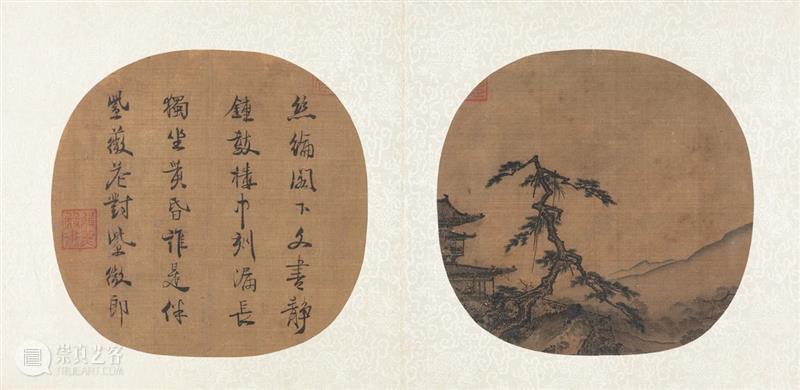 絲綸閣下文書静
鍾鼓樓中刻漏長
獨坐黄昏誰是伴
紫薇花對紫微郎
崇真艺客
TRUEART.COM